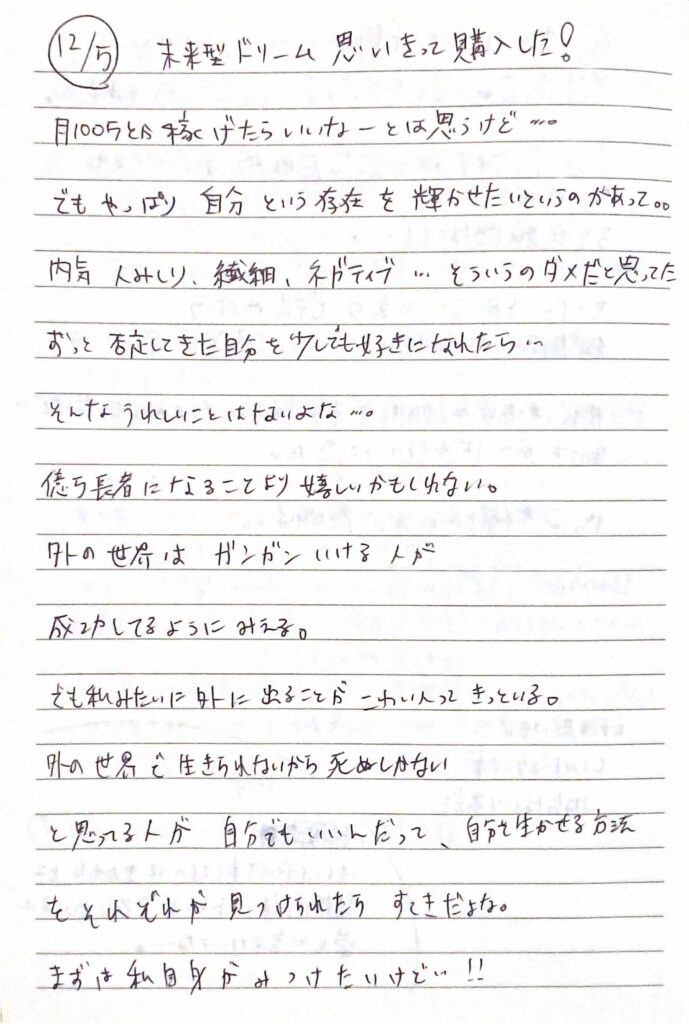 12/5 未来型ドリーム 思いきって購入した!
月100万とか稼げたらいいなーとは思うけど…。
でもやっぱり 自分 という存在 を 輝かせたいというのがあって。。
内気 人みしり、繊細、ネガティブ … そういうのダメだと思ってた
ずっと 否定してきた自分を少しでも好きになれたら…
そんなうれしいことはないよな…。
億万長者になることより嬉しいかもしれない。
外の世界は ガンガンいける人が
成功してるようにみえる。
でも私みたいに外に出ることが こわい人って きっといる。
外の世界で生きられないから死ぬしかない
と思ってる人が 自分でもいいんだって、自分を生かせる方法
をそれぞれが 見つけられたら すてきだよな。
まずは私自身がみつけたいけど…!!